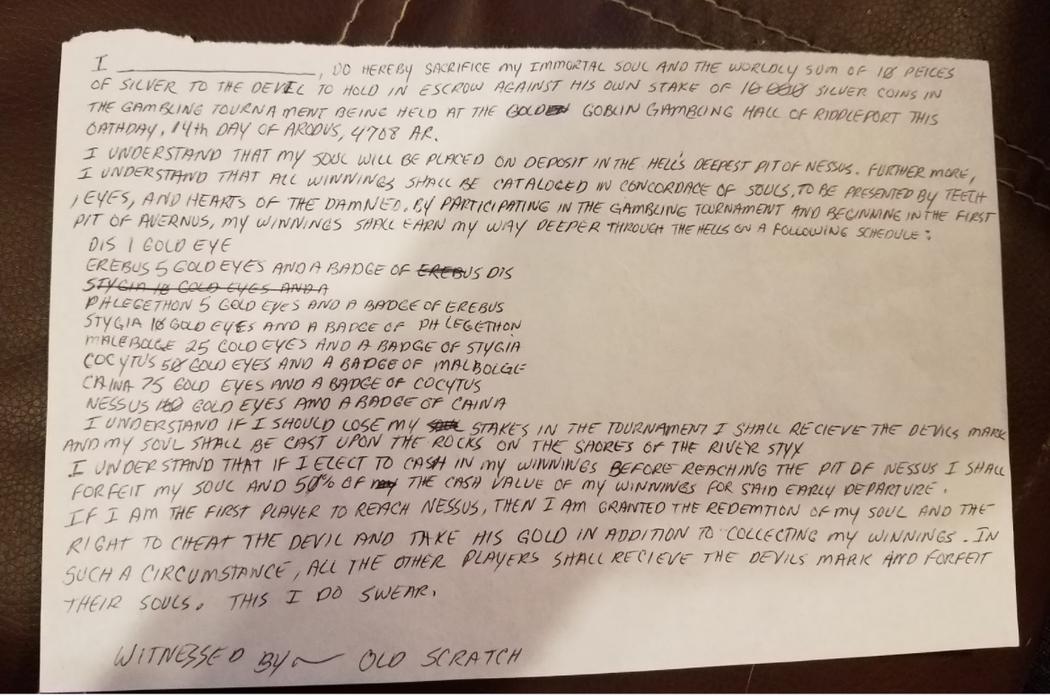 I ____________________, DO HEREBY SACRIFICE MY IMMORTAL SOUL AND THE WORLDLY SUM OF 10 PEICES
OF SILVER TO THE DEVIL TO HOLD IN ESCROW AGAINST HIS OWN STAKE OF 10 000 SILVER COINS IN
THE GAMBLING TOURNAMENT BEING HELD AT THE GOLDEN GOBLIN GAMBLING HALL OF RIDDLEPORT THIS
OATHDAY, 14th DAY OF ARODUS, 4708 AR.
I UNDERSTAND THAT MY SOUL WILL BE PLACED ON DEPOSIT IN THE HELL'S DEEPEST PIT OF NESSUS. FURTHER MORE,
I UNDERSTAND THAT ALL WINNINGS SHALL BE CATALOGED IN CONCORDACE OF SOULS, TO BE PRESENTED BY TEETH
, EYES, AND HEARTS OF THE DAMNED. BY PARTICIPATING IN THE GAMBLING TOURNAMENT AND BEGINNING IN THE FIRST
PIT OF AVERNUS, MY WINNINGS SHALL EARN MY WAY DEEPER THROUGH THE HELLS ON A FOLLOWING SCHEDULE:
DIS 1 GOLD EYE
EREBUS 5 GOLD EYES AND A BADGE OF EREBUS DIS
STYGIA 10 GOLD EYES AND A
PHLEGETHON 5 GOLD EYES AND A BADGE OF EREBUS
STYGIA 10 GOLD EYES AND A BADGE OF PHLEGETHON
MALEBOLGE 25 GOLD EYES AND A BADGE OF STYGIA
COCYTUS 50 GOLD EYES AND A BADGE OF MALBOLGE
CAINA 75 GOLD EYES AND A BADGE OF COCYTUS
NESSUS 100 GOLD EYES AND A BADGE OF CAINA
I UNDERSTAND IF I SHOULD LOSE MY SOUL STAKES IN THE TOURNAMENT I SHALL RECIEVE THE DEVILS MARK
AND MY SOUL SHALL BE CAST UPON THE ROCKS ON THE SHORES OF THE RIVER STYX
I UNDERSTAND THAT IF I ELECT TO CASH IN MY WINNINGS BEFORE REACHING THE PIT OF NESSUS I SHALL
FORFEIT MY SOUL AND 50% OF MY THE CASH VALUE OF MY WINNINGS FOR SAID EARLY DEPARTURE.
IF I AM THE FIRST PLAYER TO REACH NESSUS, THEN I AM GRANTED THE REDEMTION OF MY SOUL AND THE
RIGHT TO CHEAT THE DEVIL AND TAKE HIS GOLD IN ADDITION TO COLLECTING MY WINNINGS. IN
SUCH A CIRCUMSTANCE, ALL THE OTHER PLAYERS SHALL RECIEVE THE DEVILS MARK AND FORFEIT
THEIR SOULS. THIS I DO SWEAR.
WITNESSED BY ~ OLD SCRATCH